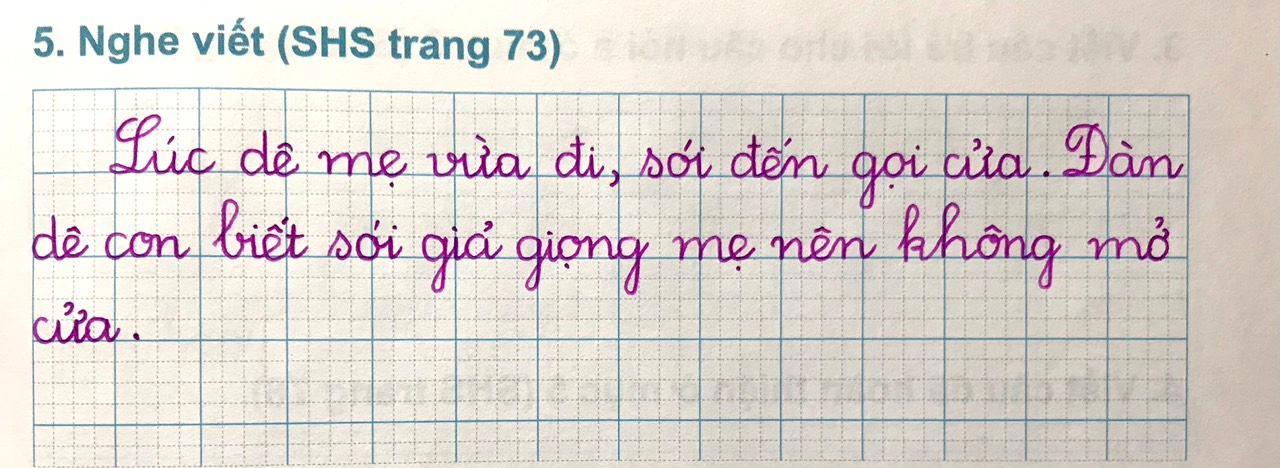 5. Nghe viết (SHS trang 73)
Lúc dê mẹ vừa đi, sói đến gọi cửa. Đàn
dê con biết sói giả giọng mẹ nên không mở
cửa.